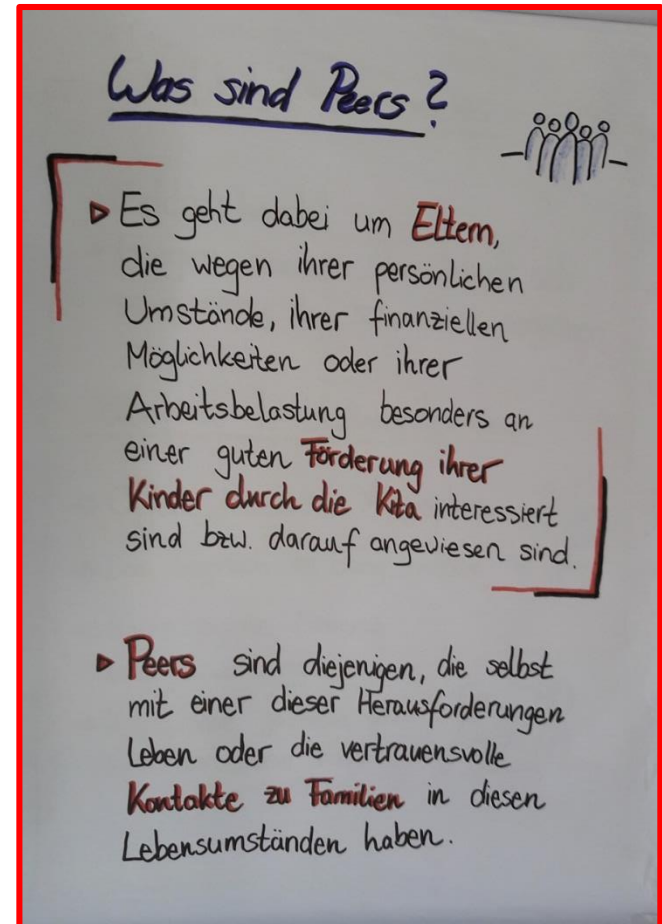 Was sind Peers?
▷ Es geht dabei um Eltern,
die wegen ihrer persönlichen
Umstände, ihrer finanziellen
Möglichkeiten oder ihrer
Arbeitsbelastung besonders an
einer guten Förderung ihrer
Kinder durch die Kita interessiert
sind bzw. darauf angewiesen sind.
▷ Peers sind diejenigen, die selbst
mit einer dieser Herausforderungen
Leben oder die vertrauensvolle
Kontakte zu Familien in diesen
Lebensumständen haben.